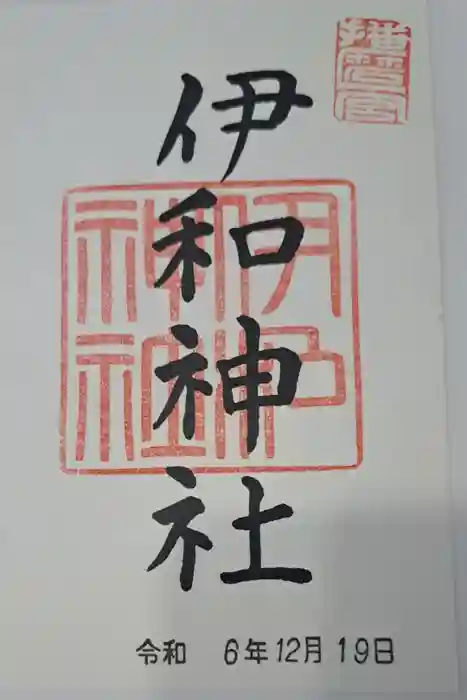 播磨一宮
伊和神社
伊和神社
令和 6年12月19日